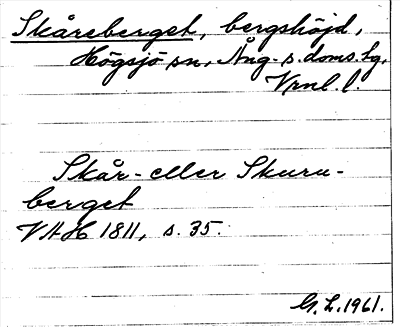 Skåreberget, bergshöjd,
Högsjö sn, Ång. s. doms. tg,
Vrnl. l.
Skår- eller Skuru-
berget
VAH 1811, s. 35.
G. L. 1961.